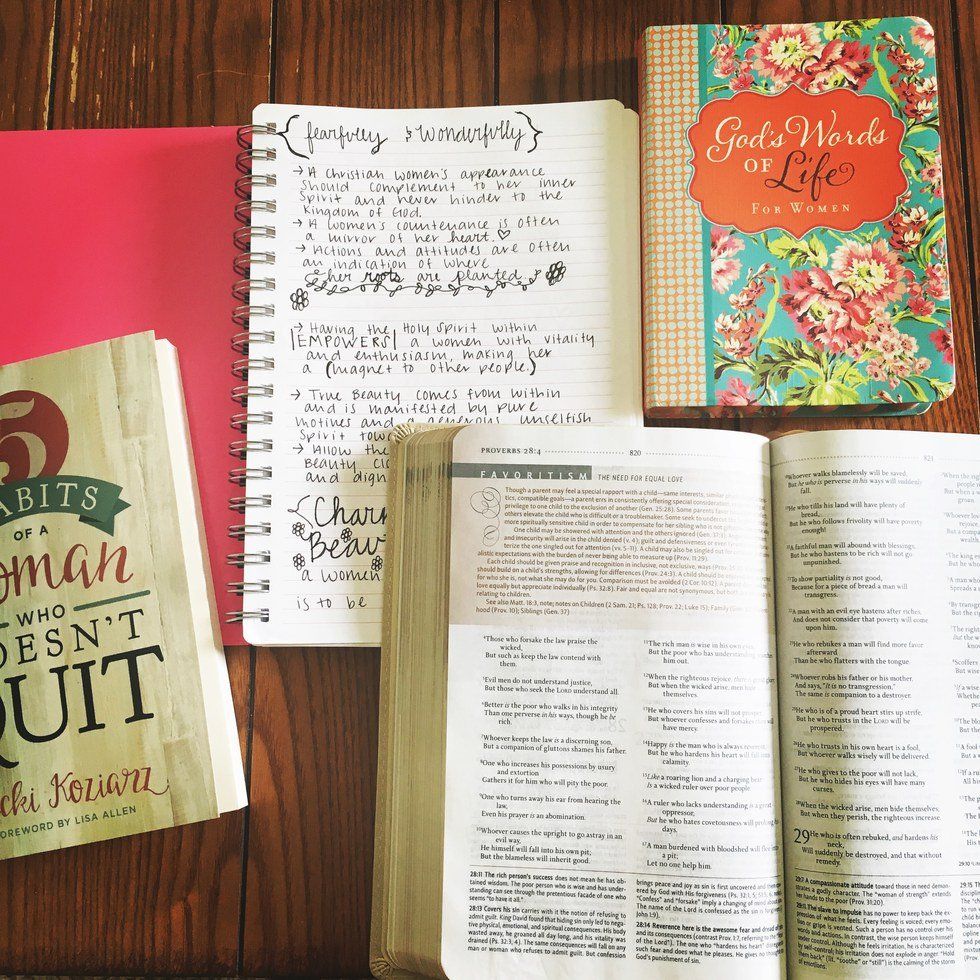 { fearfully & wonderfully }
→ A Christian women's appearance
should complement to her inner
spirit and never hinder to the
Kingdom of God.
→ A women's countenance is often
a mirror of her heart. ♡
→ Actions and attitudes are often
an indication of where
her roots are planted.
→ Having the Holy Spirit within
|EMPOWERS| a women with vitality
and enthusiasm, making her
a (magnet to other people.)
→ True Beauty comes from within
and is manifested by pure
motives and a generous unselfish
Spirit
→ Allow the
Beauty
and
a women
is to be
God's Words
OF Life
FOR WOMEN
5
HABITS
OF A
woman
WHO
DOESN'T
QUIT
Koziarz
FOREWORD BY LISA ALLEN
PROVERBS 28:4 820
FAVORITISM THE NEED FOR EQUAL LOVE
Though a parent may feel a special rapport with a child—same interests, similar
tics, compatible goals—a parent errs in consistently offering special consideration
privilege to one child to the exclusion of another (Gen. 25:28). Some parents favor
others elevate the child who is difficult or a troublemaker. Some seek to
more spiritually sensitive child in order to compensate for her sibling who is
One child may be showered with attention and the others ignored (Gen. 37:3).
and insecurity will arise in the child denied (v. 4); guilt and defensiveness or even
terize the one singled out for attention (vv. 5–11). A child may also be singled out for
alistic expectations with the burden of never being able to measure up (Prov. 11:29).
Each child should be given praise and recognition in inclusive, not exclusive, ways (Prov.
should build on a child's strengths, allowing for differences (Prov. 24:3). A child should be
for who she is, not what she may do for you. Comparison must be avoided (2 Cor. 10:12). A parent
love equally but appreciate individually (Ps. 32:8). Fair and equal are not synonymous, but both are
relating to children.
See also Matt. 18:3, note; notes on Children (2 Sam. 21; Ps. 128; Prov. 22; Luke 15); Family (Gen.
hood (Prov. 10); Siblings (Gen. 37)
4Those who forsake the law praise the
wicked,
But such as keep the law contend with
them.
5Evil men do not understand justice,
But those who seek the LORD understand all.
6Better is the poor who walks in his integrity
Than one perverse in his ways, though he be
rich.
7Whoever keeps the law is a discerning son,
But a companion of gluttons shames his father.
8One who increases his possessions by usury
and extortion
Gathers it for him who will pity the poor.
9One who turns away his ear from hearing the
law,
Even his prayer is an abomination.
10Whoever causes the upright to go astray in an
evil way,
He himself will fall into his own pit;
But the blameless will inherit good.
11The rich man is wise in his own eyes,
But the poor who has understanding
him out.
12When the righteous rejoice, there is great
But when the wicked arise, men hide
themselves.
13He who covers his sins will not prosper,
But whoever confesses and forsakes
have mercy.
14Happy is the man who is always reverent,
But he who hardens his heart will fall
calamity.
15Like a roaring lion and a charging bear
Is a wicked ruler over poor people.
16A ruler who lacks understanding is a great
oppressor,
But he who hates covetousness will prolong
days.
17A man burdened with bloodshed will flee
a pit;
Let no one help him.
28:11 The rich person's success does not mean he has ob-
tained wisdom. The poor person who is wise and has under-
standing can see through the pretentious facade of one who
seems "to have it all".
28:13 Covers his sin carries with it the notion of refusing to
admit guilt. King David found that hiding sin only led to nega-
tive physical, emotional, and spiritual consequences. His body
wasted away, he groaned all day long, and his vitality was
drained (Ps. 32:3, 4). The same consequences will fall on any
man or woman who refuses to admit guilt. But confession
brings peace and joy as sin is first uncovered and then
ered by God with His forgiveness (Ps. 32:1, 5,
"Confess" and "forsake" imply a changing of mind about
The name of the Lord is confessed as the sin is
John 1:9).
28:14 Reverence here is the awesome fear and dread of
and its consequences (contrast Prov. 1:7, referring to "the
of the Lord"). The one who "hardens his heart"
such fear and does what he pleases. He gives no thought
God's punishment of sin.
821
18Whoever walks blamelessly will be saved,
But he who is perverse in his ways will suddenly
fall.
19He who tills his land will have plenty of
bread,
But he who follows frivolity will have poverty
enough!
20A faithful man will abound with blessings,
But he who hastens to be rich will not go
unpunished.
21To show partiality is not good,
Because for a piece of bread a man will
transgress.
22A man with an evil eye hastens after riches,
And does not consider that poverty will come
upon him.
23He who rebukes a man will find more favor
afterward
Than he who flatters with the tongue.
24Whoever robs his father or his mother,
And says, "It is no transgression,"
The same is companion to a destroyer.
25He who is of a proud heart stirs up strife,
But he who trusts in the LORD will be
prospered.
26He who trusts in his own heart is a fool,
But whoever walks wisely will be delivered.
27He who gives to the poor will not lack,
But he who hides his eyes will have many
curses.
28When the wicked arise, men hide themselves;
But when they perish, the righteous increase.
29 He who is often rebuked, and hardens his
neck,
Will suddenly be destroyed, and that without
remedy.
29:7 A compassionate attitude toward those in need demon-
strates a godly character. The "woman of strength" extends
her hands to the poor (Prov. 31:20).
29:11 The slave to impulse has no power to keep back the ex-
pression of what he feels. Every feeling is voiced; every emo-
tion or gripe is vented. Such a person has no control over his
words and actions. In contrast, the wise person keeps himself
under control. Although he feels irritation, he is characterized
by self-control; his irritation does not explode in anger. "Hold
them back" (lit. "soothe" or "still") is of the calming of the storm